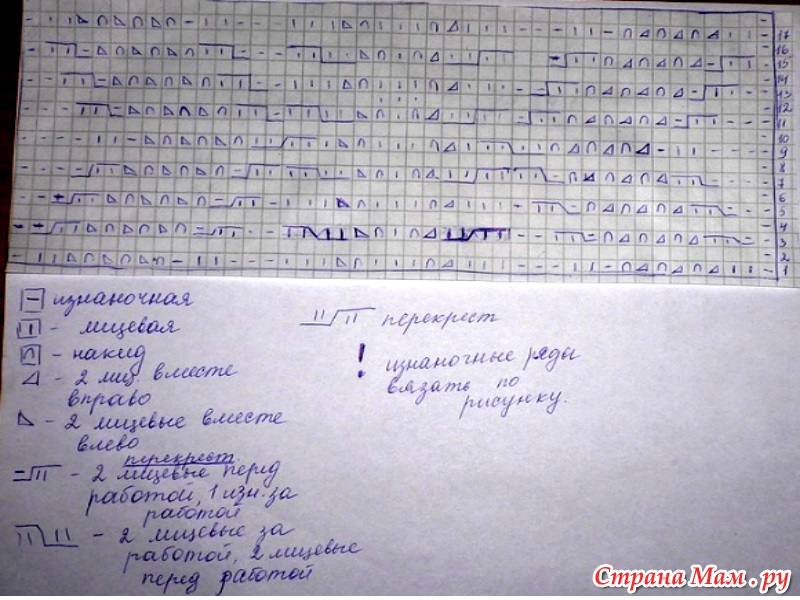 17
16
15
14
13
12
11
10
9
8
7
6
5
4
3
2
1
изнаночная
- лицевая
- накид
- 2 лиц. вместе
вправо
- 2 лицевые вместе
влево
перекрест.
- 2 лицевые перед
работой, 1 изн. за
работой
- 2 лицевые за
работой, 2 лицевые
перед работой
перекрест
! изнаночные ряды
вязать по
рисунку.
Страна Мам.ру